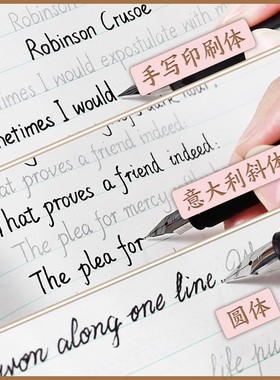 Robinson Crusoe
times I would expostulate with m
手写印刷体
metimes I would
What proves a friend indeed:
意大利斜体
What proves a friend indeed:
The plea for mercy
The plea for
圆体
won along one line.
life pu